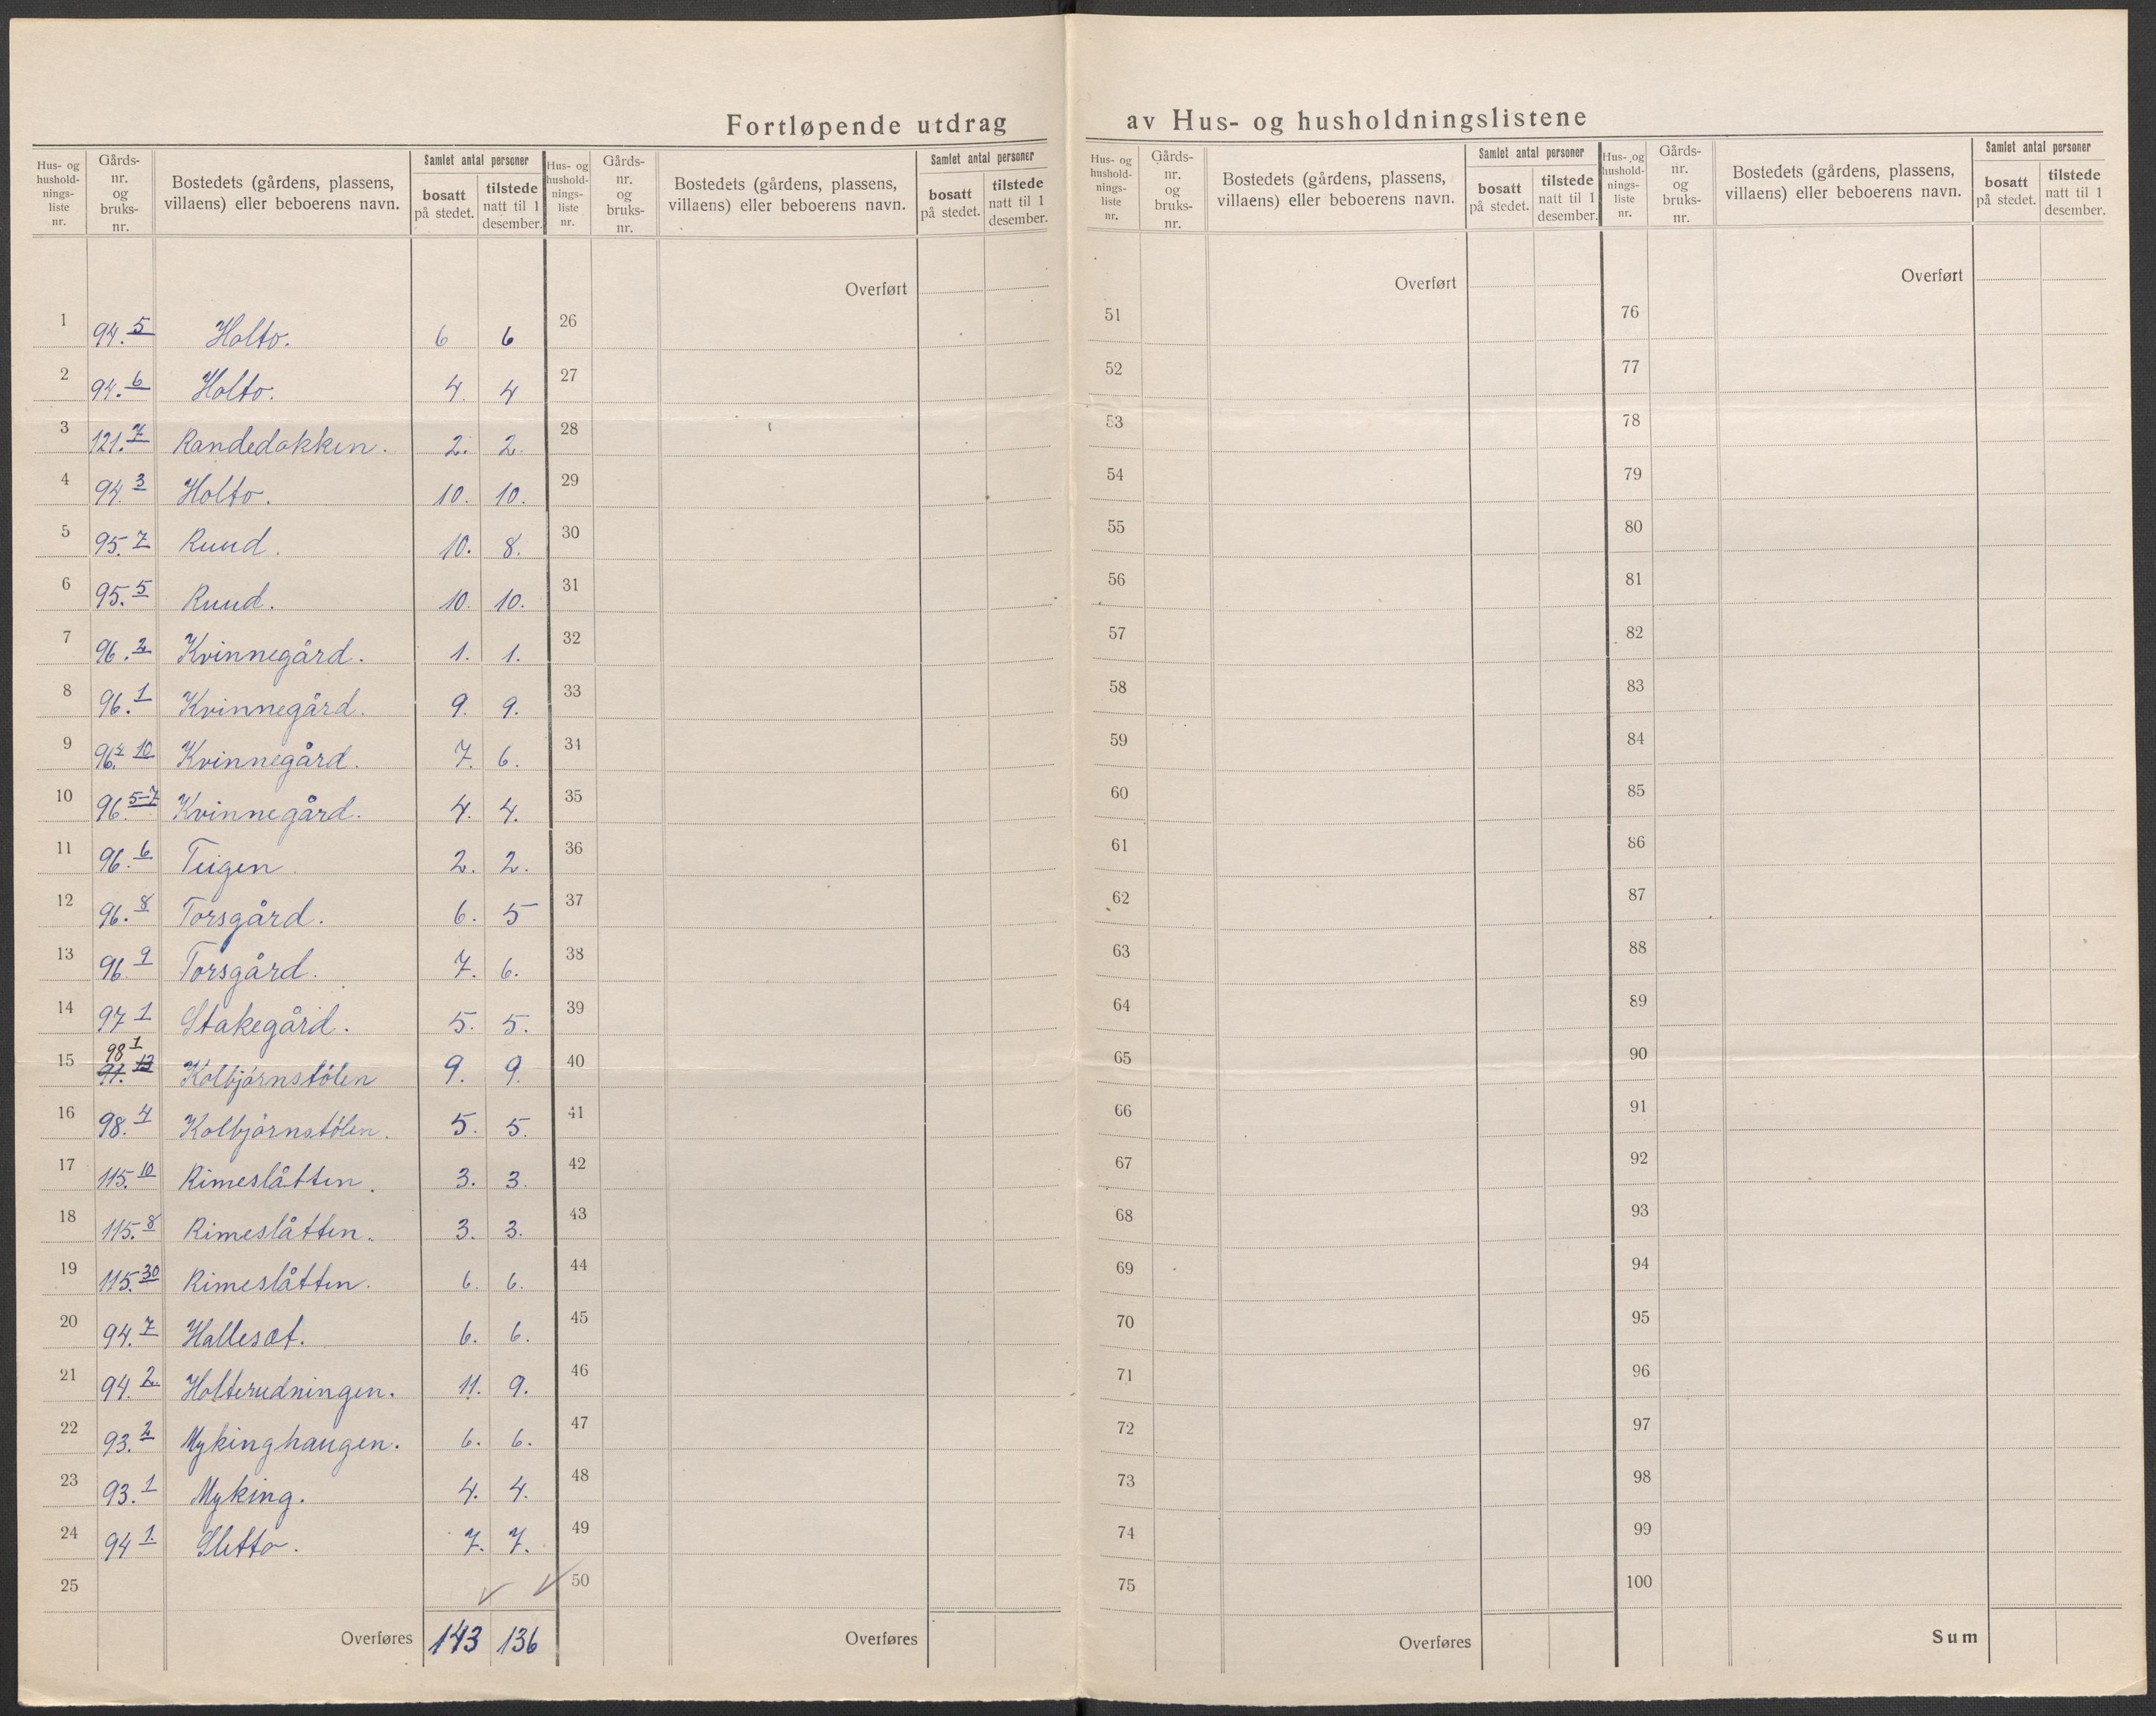 Fortløpende utdrag av Hus- og husholdningslistene
Hus- og hushold-nings-liste nr. | Gårds-nr. og bruks-nr. | Bostedets (gårdens, plassens, villaens) eller beboerens navn. | Samlet antal personer | bosatt på stedet. | tilstede natt til 1 desember.
1 94.5 Holto. 6 6
2 94.6 Holto. 4. 4
3 121.7 Randedokken. 2. 2.
4 94.3 Holto. 10. 10.
5 95.7 Ruud. 10. 8.
6 95.5 Ruud. 10. 10.
7 96.2 Kvinnegård. 1. 1.
8 96.1 Kvinnegård. 9. 9.
9 96. 10 Kvinnegård. 7. 6.
10 96.5-7 Kvinnegård. 4. 4.
11 96.6 Teigen. 2. 2.
12 96.8 Torsgård. 6. 5
13 96.9 Torsgård. 7. 6.
14 97 1 Stakegård. 5. 5.
98 1
15 97. 13 Kolbjørnstölen 9. 9.
16 98.4 Kolbjørnstölen. 5. 5.
17 115.10 Rimeslåtten. 3. 3.
18 115.8 Rimeslåtten. 3. 3.
19 115.30 Rimeslåtten. 6. 6.
20 94.7 Hallesæt. 6. 6.
21 94.2. Holterudningen. 11. 9.
22 93.2 Mykinghaugen. 6. 6.
23 93.1 Myking. 4. 4.
24 94 1. Sletto. 7. 7.
25
Overføres 143 136
Hus- og hushold-nings-liste nr. | Gårds-nr. og bruks-nr. | Bostedets (gårdens, plassens, villaens) eller beboerens navn. | Samlet antal personer | bosatt på stedet. | tilstede natt til 1 desember.
Overført
26
27
28
29
30
31
32
33
34
35
36
37
38
39
40
41
42
43
44
45
46
47
48
49
50
Overføres
Hus- og hushold-nings-liste nr. | Gårds-nr. og bruks-nr. | Bostedets (gårdens, plassens, villaens) eller beboerens navn. | Samlet antal personer | bosatt på stedet. | tilstede natt til 1 desember.
Overført
51
52
53
54
55
56
57
58
59
60
61
62
63
64
65
66
67
68
69
70
71
72
73
74
75
Overføres
Hus- og hushold-nings-liste nr. | Gårds-nr. og bruks-nr. | Bostedets (gårdens, plassens, villaens) eller beboerens navn. | Samlet antal personer | bosatt på stedet. | tilstede natt til 1 desember.
Overført
76
77
78
79
80
81
82
83
84
85
86
87
88
89
90
91
92
93
94
95
96
97
98
99
100
Sum